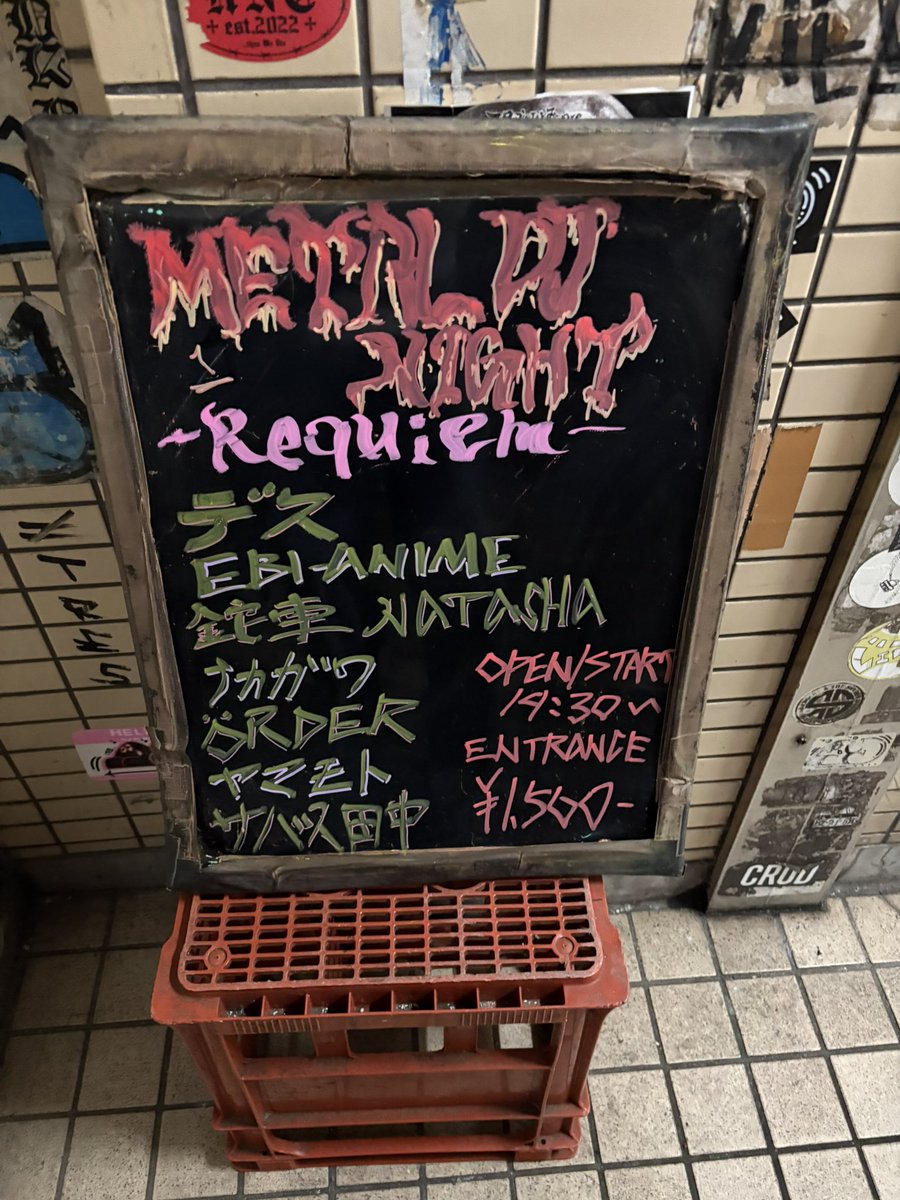 est.2022
METAL DJ
NIGHT
-Requiem-
デス
EBI-ANIME
NATASHA
ナカガワ
ÖRDER
ヤマモト
サバス田中
OPEN/START
19:30~
ENTRANCE
¥1,500-
HELL
CRUD